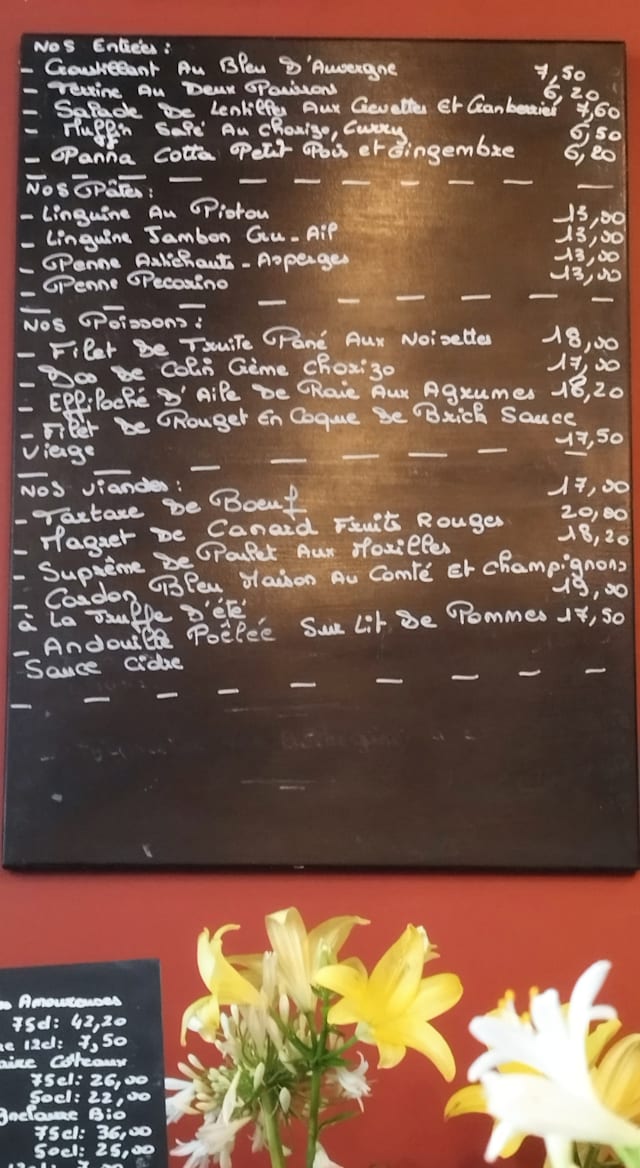 Nos Entrées :
- Croustillant Au Bleu D'Auvergne 7,50
- Terrine Au Deux Poissons 6,20
- Salade De Lentilles Aux Crevettes Et Cranberries 7,60
- Muffin Salé Au Chorizo, Curry 6,50
- Panna Cotta Petit Pois et Gingembre 6,20
Nos Pâtes :
- Linguine Au Pistou 13,00
- Linguine Jambon Cru - Ail 13,00
- Penne Artichauts - Asperges 13,00
- Penne Pecorino 13,00
Nos Poissons :
- Filet De Truite Pané Aux Noisettes 18,00
- Dos De Colin Crème Chorizo 17,00
- Effiloché D'Aile De Raie Aux Agrumes 18,20
- Filet De Rouget En Coque De Brick Sauce
Vierge 17,50
Nos Viandes :
- Tartare De Boeuf 17,00
- Magret De Canard Fruits Rouges 20,00
- Suprême De Poulet Aux Morilles 18,20
- Cordon Bleu Maison Au Comté Et Champignons
à La Truffe D'été 19,00
- Andouille Poêlée Sur Lit De Pommes 17,50
Sauce Cidre
Amoureuses
75cl: 42,20
12cl: 7,50
Coteaux
75cl: 26,00
50cl: 22,00
Bio
75cl: 36,00
50cl: 25,00